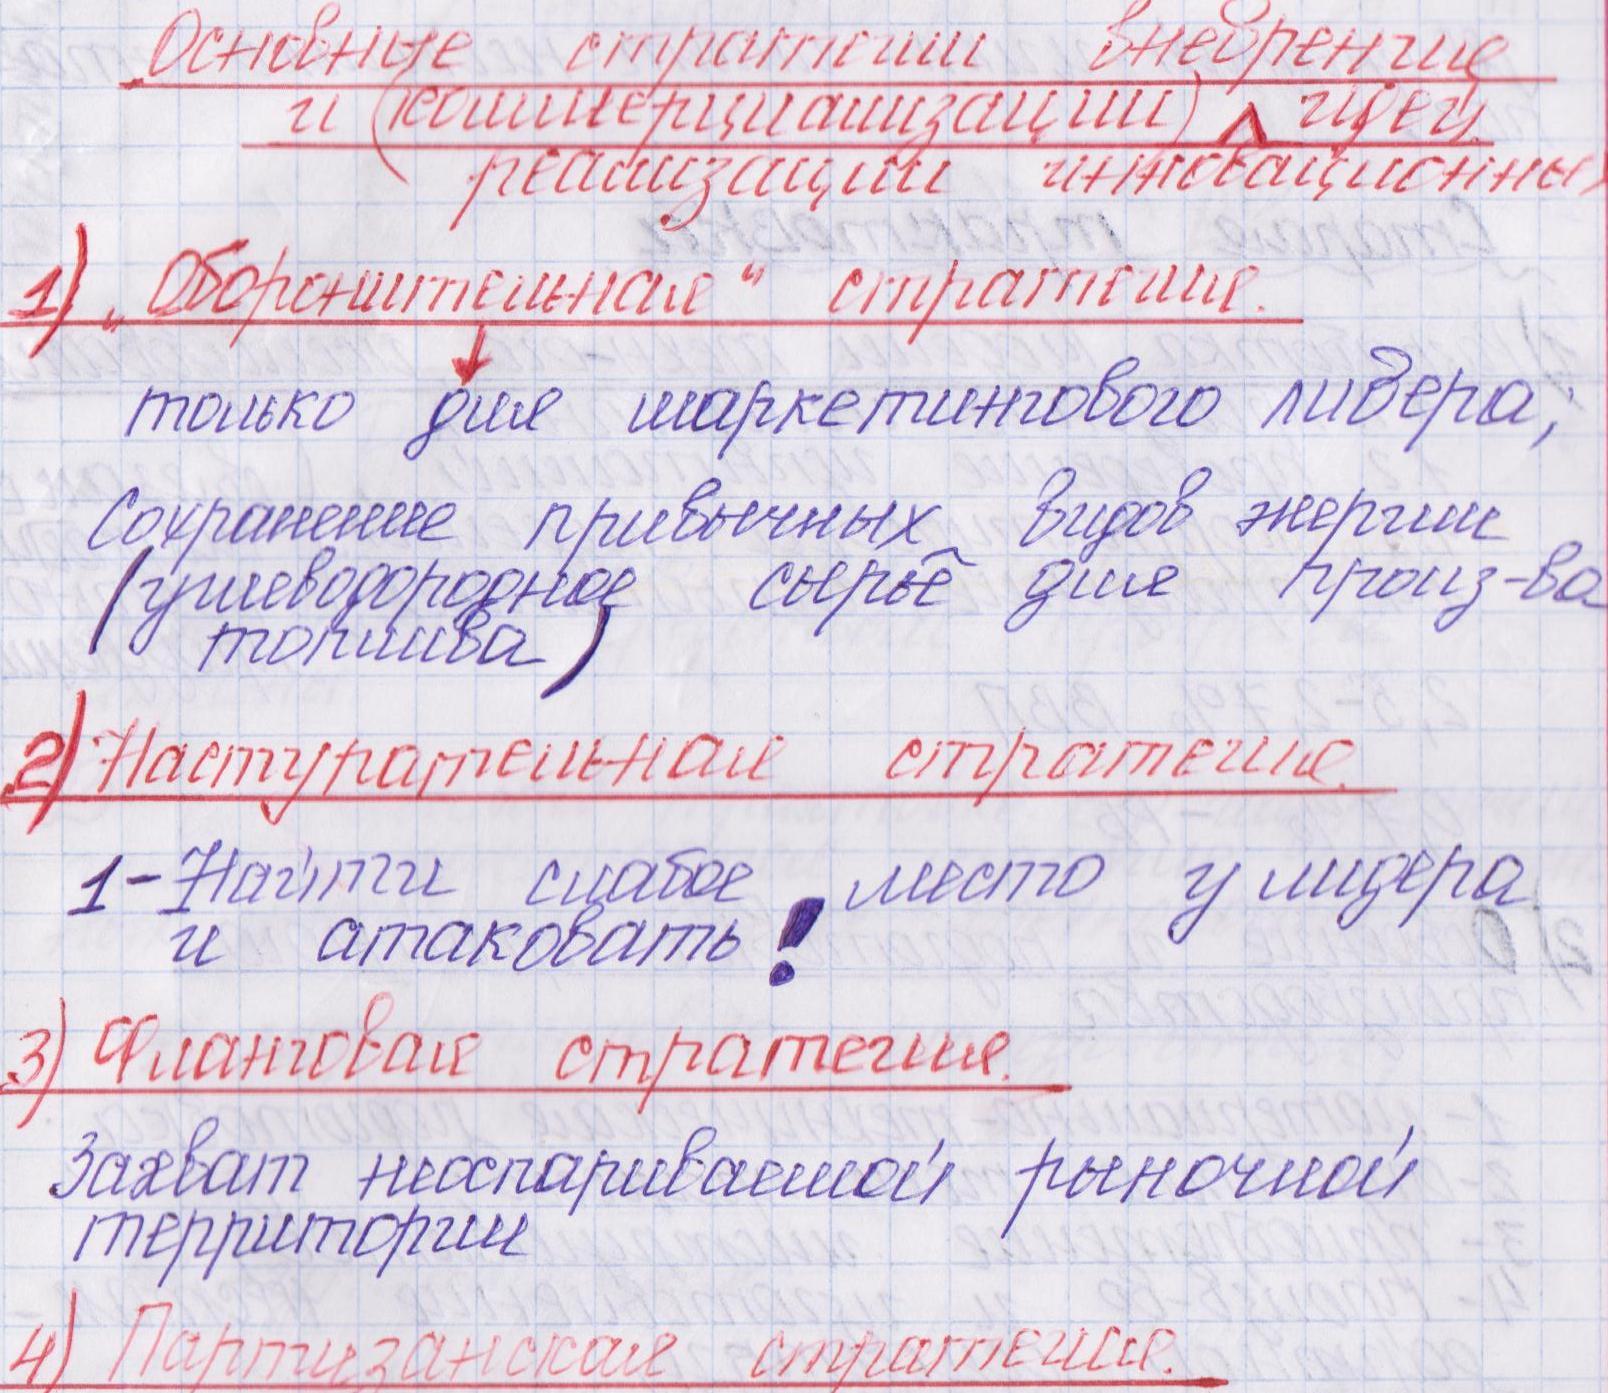 Основные стратегии внедрение
и (коммерциализации) ^ идеи.
реализации инновационных
1) „Оборонительная“ стратегия.
только для маркетингового лидера;
Сохранение привычных видов энергии
(углеводородное сырьё для произ-ва
топлива)
2) Наступательная стратегия.
1- Найти слабое место у лидера
и атаковать!
3) Фланговая стратегия.
Захват неоспариваемой рыночной
территории
4) Партизанская стратегия.